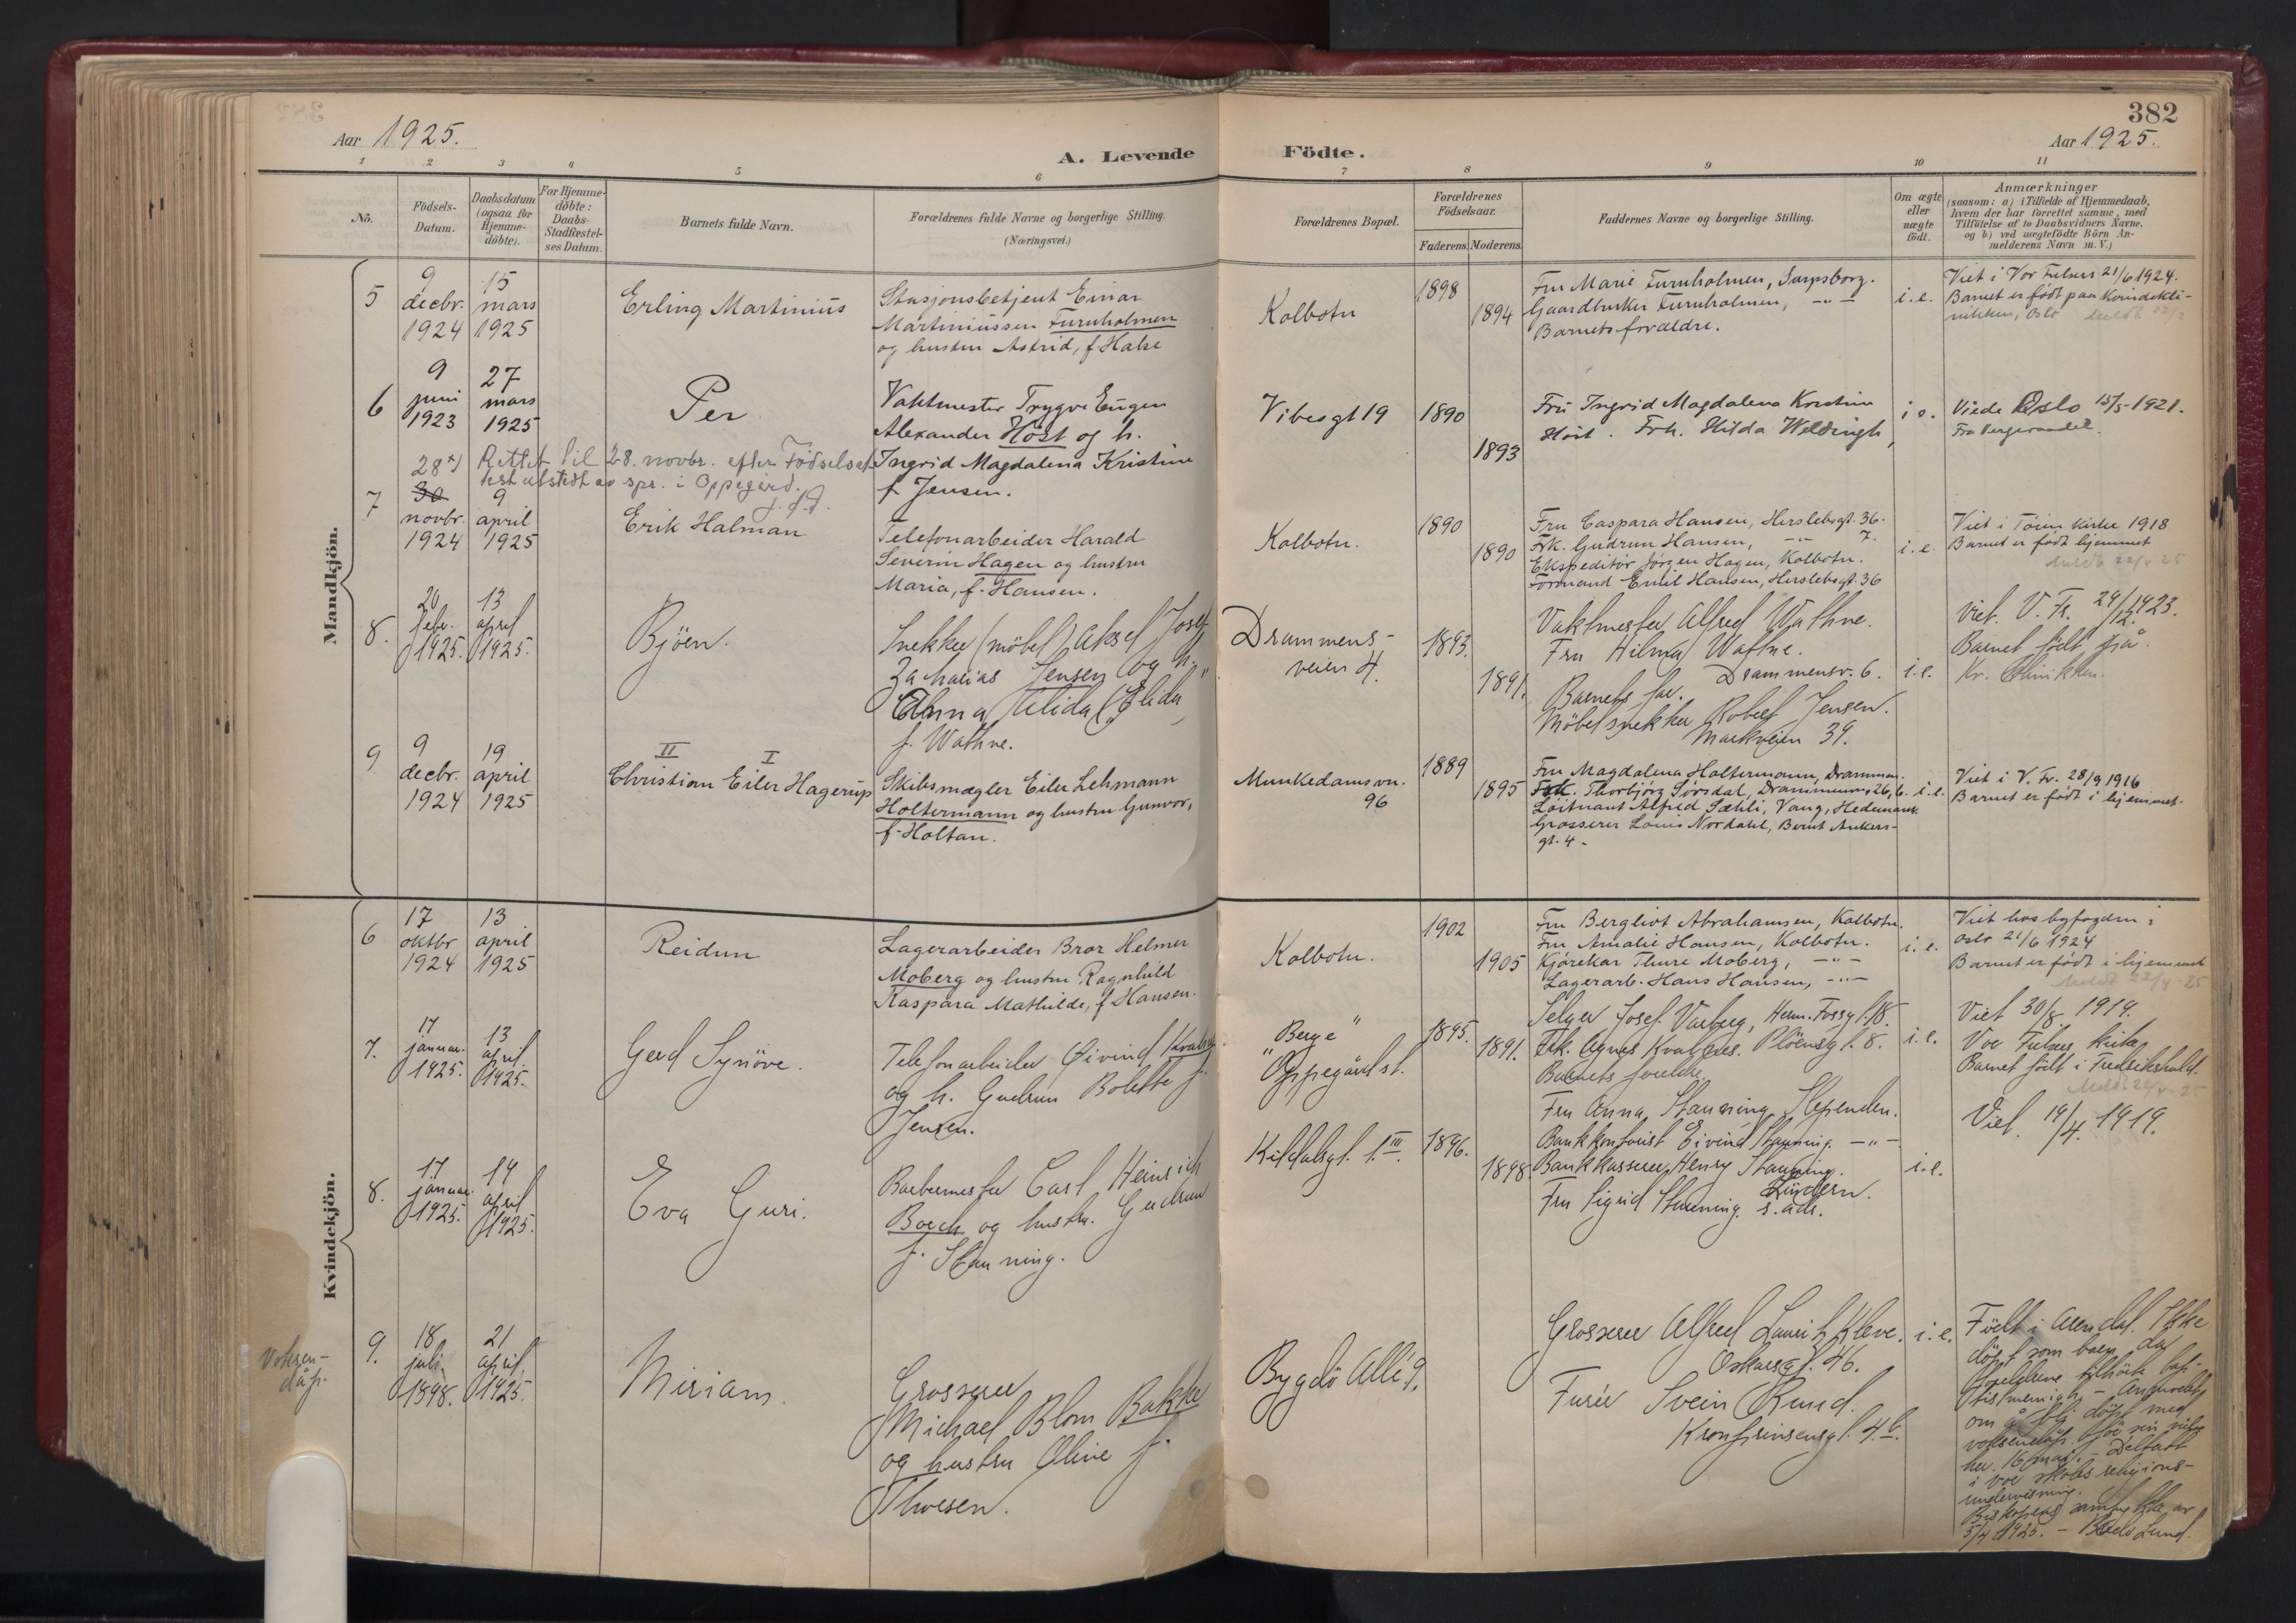 382
Aar 1925.
A. Levende Födte.
Aar 1925.
1 2 3 4 5 6 7 8 9 10 11
No.
Födsels-
Datum.
Daabsdatum
(ogsaa for
Hjemme-
döbte).
For Hjemme-
döbte:
Daabs-
Stadfæstel-
ses Datum.
Barnets fulde Navn.
Forældrenes fulde Navne og borgerlige Stilling.
(Næringsvei.)
Forældrenes Bopæl.
Forældrenes
Födselsaar.
Faderens. Moderens.
Faddernes Navne og borgerlige Stilling.
Om ægte
eller
uægte
födt.
Anmærkninger
(saasom: a) i Tilfælde af Hjemmedaab,
hvem der har forrettet samme, med
Tilföielse af to Daabsvidners Navne,
og b) ved uægtefödte Börn An-
melderens Navn m. V.)
Mandkjön.
5
9
decbr.
1924
15
mars
1925
Erling Martinius
Stasjonsbetjent Einar
Martiniussen Furuholmen
og hustru Astrid, f. Halse
Kolbotn
1898
1894
Fru Marie Furuholmen, Sarpsborg.
Gaardbruker Furuholmen, -"-
Barnets forældre.
i.e.
Viet i Vor Frelsers 21/6 1924.
Barnet er født paa Kvindekli-
nikken, Oslo
6
9
juni
1923
27
mars
1925
Per
Vaktmester Trygve Eugen
Alexander Höst og h.
Ingrid Magdalena Kristine
f. Jensen.
Vibesgt 19
1890
1893
Fru Ingrid Magdalena Kristine
Höst. Frk. Hilda
i e.
Viede Oslo 15/5-1921.
28 x) Rettet til 28. novbr. efter Födselsat-
test utstedt av spr. i Oppegård.
7
30
novbr.
1924
9
april
1925
Erik Halman
Telefonarbeider Harald
Severin Hagen og hustru
Maria, f. Hansen.
Kolbotn.
1890
1890
Fru Caspara Hansen, Herslebsgt. 36.
Frk. Gudrun Hansen, -"- 7.
Ekspeditör Jörgen Hagen, Kolbotn.
Formand Emil Hansen, Herslebsgt. 36
i.e.
Viet i Töien kirke 1918
Barnet er födt hjemmet
Meldt 22/4 25
8.
20
febr.
1925.
13
april
1925.
Bjöen.
Snekker (möbel) Aksel Josef
Zacharias Jensen og h.
Anna Elida
f. Wathne.
Drammens-
veien 4.
1893.
1891.
Vaktmester Alfred Wathne.
Fru Hilma Wathne.
Drammensv. 6.
Barnets far.
Möbelsnekker Robert Jensen.
Markveien 39.
i.e.
Viet. V. Fr. 24/12 1923.
Barnet födt på
Kv. Klinikken.
9
9
decbr.
1924
19
april
1925
II I
Christian Eiler Hagerup
Skibsmægler Eiler Lehmann
Holtermann og hustru Gunvor,
f. Holtan.
Munkedamsvn.
96
1889
1895
Fru Magdalena Holtermann, Drammen.
Frk. Thorbjörg Sörsdal, Drammensv. 26,
Löitnant Alfred Sæhli, Vang, Hedemark.
Grosserer Louis Nordahl, Bernt Ankers-
gt. 4.
i.e.
Viet i V. Fr. 28/9 1916
Barnet er født i hjemmet.
Kvindekjön.
6
17
oktbr
1924
13
april
1925
Reidun
Lagerarbeider Bror Helmer
Moberg og hustru Ragnhild
Kaspara Mathilde, f. Hansen.
Kolbotn.
1902
1905
Fru Bergliot Abrahamsen, Kolbotn.
Fru Amalie Hansen, Kolbotn.
Kjörekar Thure Moberg, -"-
Lagerarb. Hans Hansen, -"-
i.e.
Viet hos byfogden i
Oslo 21/6 1924
Barnet er født i hjemmet
Meldt 22/4-25
7.
17
januar.
1925.
13
april.
1925.
Gerd Synöve.
Telefonarbeider Øivind
og h. Gudrun Bolette f.
Jensen.
"Berge"
Oppegård st.
1895.
1891.
Selger Josef Varberg, Herm. Fossgt. 18.
Frk. Agnes Plöensgt. 8.
Barnets foreldre.
i.e.
Viet 30/8 1919.
Vor Frelsers kirke
Barnet födt i Fredrikshald.
Meldt 22/4-25
8.
17
januar.
1925.
14
april
1925.
Eva Guri.
Barbermester Carl Heinrich
Borch og hustru Gudrun
f. Stauning.
Kildalsgt. 1 III.
1896.
1898.
Fru Anna Stauning, Slependen.
Bankkontorist Eivind Stauning. -"-
Bankkasserer Henry Stauning.
Lindern.
Fru Sigrid Stauning. s. adr.
i.e.
Viet. 19/4. 1919.
Voksen-
dåp.
9.
18
juli.
1898.
21
april.
1925.
Miriam.
Grosserer
Michael Blom Bakke
og hustru Oline f.
Thoresen.
Bygdö Allé 9.
Grosserer Alfred Lauritz Kleve.
Oskarsgt. 46.
Furér Svein Rund.
Kronprinsensgt. 4 b.
i.e.
Födt i Arendal. Ikke
döpt som barn da
foreldrene tilhörte bap-
tistmenigh. - Anmodet
om å bli döpt med
voksendåp för sin
her. 16 mai. - Deltatt
i vor skoles religions-
undervisning.
Biskopens samtykke av
5/4 1925. - Lund.